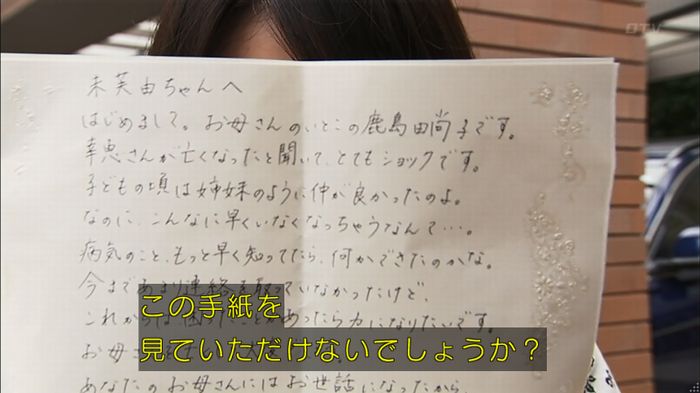 未芙由ちゃんへ
はじめまして。お母さんのいとこの鹿島田尚子です。
幸恵さんが亡くなったと聞いて、とてもショックです。
子どもの頃は姉妹のように仲が良かったのよ。
なのに、こんなに早くいなくなっちゃうなんて…。
病気のこと、もっと早く知ってたら、何かできたのかな。
今まであまり連絡を取っていなかったけど、
これからは、困ったことがあったら力になりたいです。
お母さん
あなたのお母さんにはお世話になったから、
この手紙を
見ていただけないでしょうか？